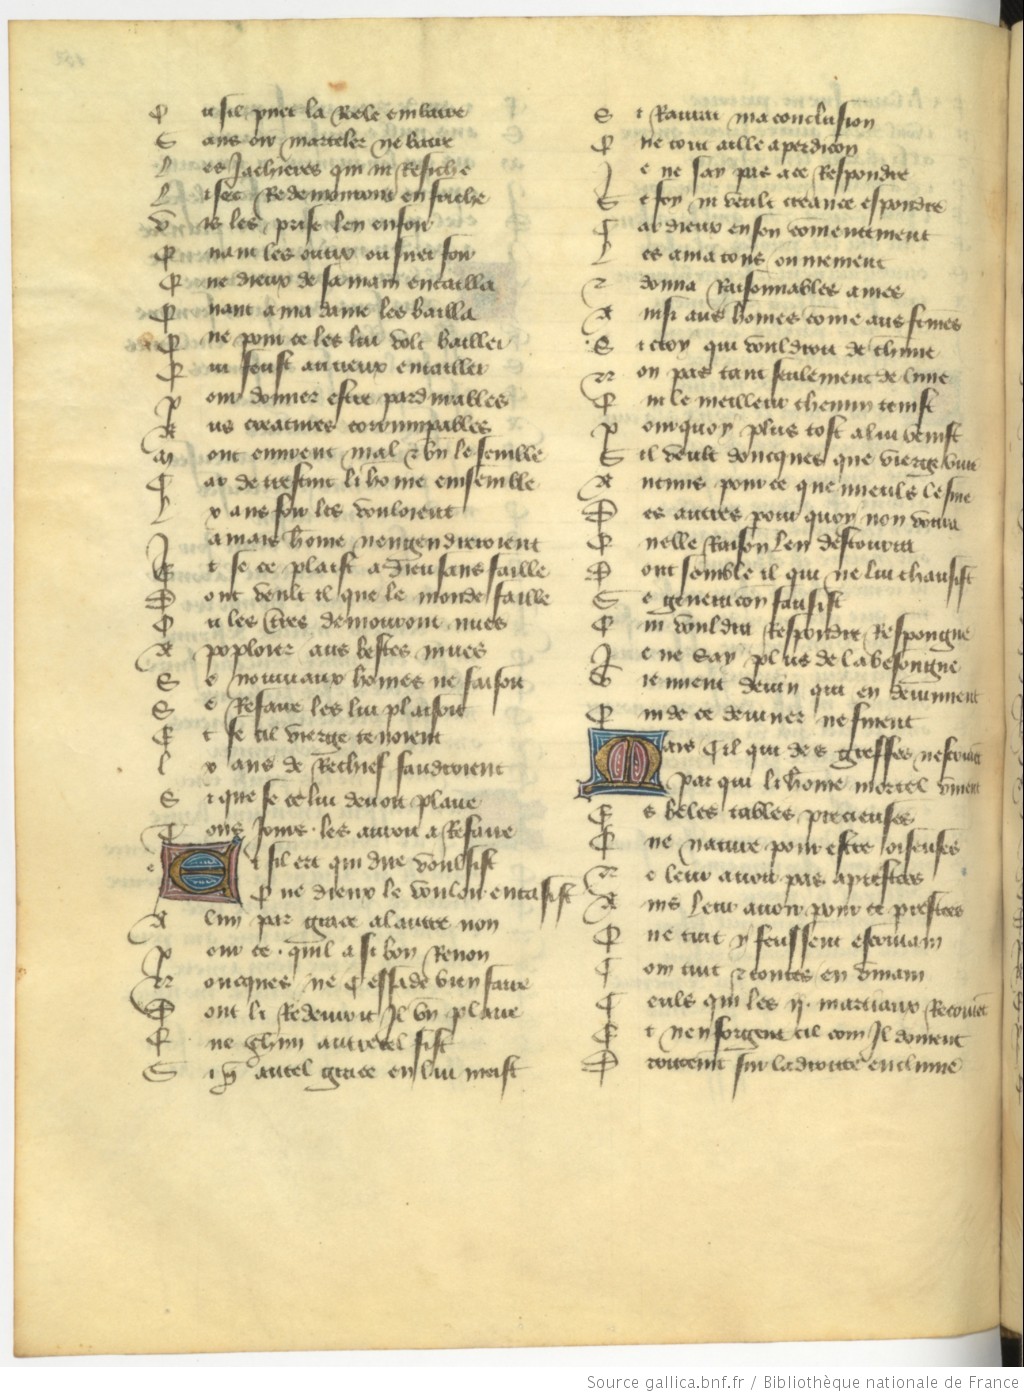 Q uil puet la Roele embatre
S ans oir marteler ne batre
L es Jachieres qui ni Refiche
L i sec Redemourront en friche
V is les prist len en soit
Q uant les outix oiseus seoit
Q ue dieux de sa main entailla
Q uant a ma dame les bailla
Q ue pour ce les lui volt baillier
Q ui seust autieux entaillier
P our donner estre pardurables
A us creatures corrumpables
M ont euvrent mal et bien le semble
C ar se trestuit li home ensemble
L x ans foir les vouloient
J amais home nengendreroient
E t se ce plaist a dieu sans faille
D ont veult il que le monde faille
O u les terres demourront nues
A poploier aus bestes mues
S e nouviaux homes ne faisoit
S e Refaire les lui plaisoit
E t se cil vierge se tenoient
L x ans de Rechief faudroient
S i que se ce lui devoit plaire
T ous Jours les auroit a Refaire
E t sil ert qui dire voulsist
Q ue dieux le vouloir en tausist
A lun par grace a lautre non
P our ce quil a si bon Renon
N oncques ne cessa de bien faire
D ont li Redevroit Il bien plaire
Q ue chun autretel fist
S i quautel grace en lui meist
S i Raurai ma conclusion
Q ue tout aille a perdicion
J e ne say pas a ce Respondre
S e foy ni veult creance espondre
C ar dieux en son comencement
L es ama tous onniement
E donna Raisonnables ames
A insi aus homes come aus femes
S i croy qui vouldroit de chune
N on pas tant seulement de lune
Q ui le meilleur chemin tenist
P our quoy plus tost a lui venist
S il veult doncques que vierge vive
A ucuns pour ce que mieuls le sive
D es autres pour quoy non voura
Q uelle Raison len destourra
D ont semble il qui ne lui chausist
S e generacion fausist
Q ui vouldra Respondre Respongne
J e ne say plus de la besongne
V iennent devin qui en devinnent
Q ui de ce deviner ne finent
M ais Cil qui des greffes nescrivent
Par qui li home mortel vivent
E s beles tables precieuses
Q ue nature pour estre oiseuses
N e leur avoit pas aprestees
A ins leur avoit pour ce prestees
Q ue tuit y feussent escrivain
C om tuit et toutes en vivain
C euls qui les ij. martiaux Recoivent
E t nen forgent cil com Il doivent
D roitement sur la droitte enclume